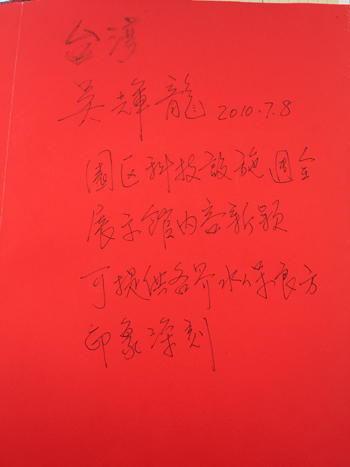 台湾
吴輝龍 2010.7.8
園区科技設施周全
展示館内容新颖
可提供各界水保良方
印象深刻